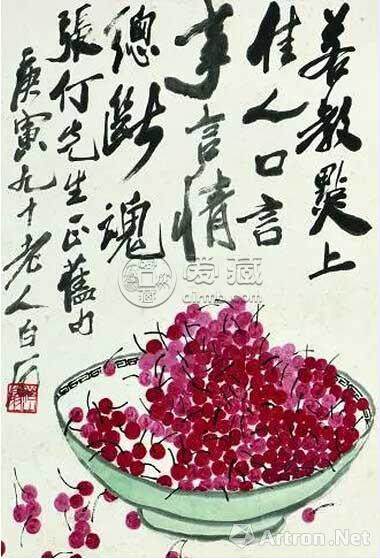 若教點上
佳人口言
事言情
總斷魂
張仃先生正舊句
庚寅九十老人白石
爱藏
Artron.Net